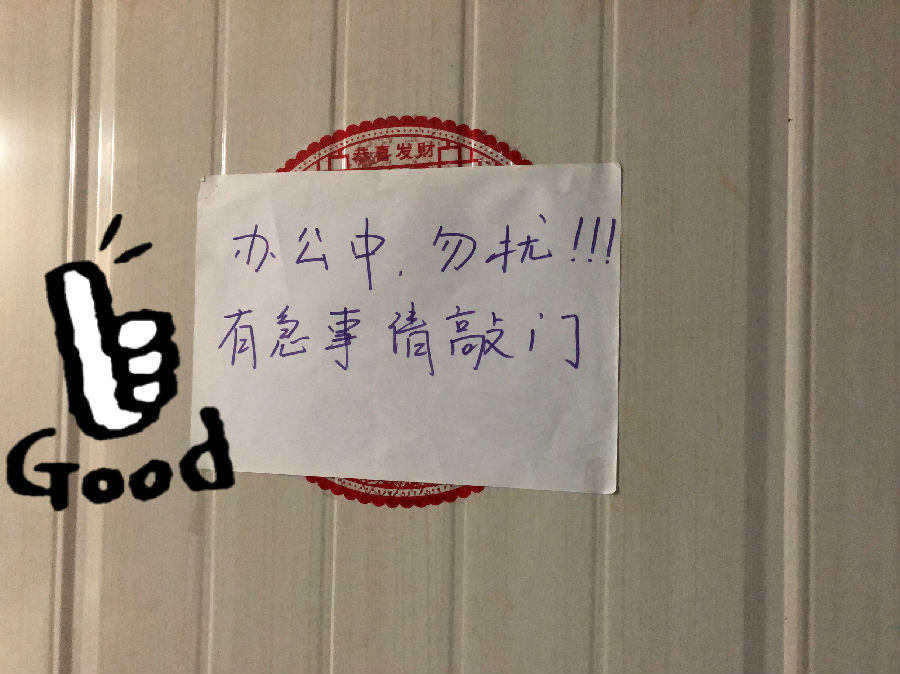 恭喜发财
办公中.勿扰!!!
有急事请敲门
Good